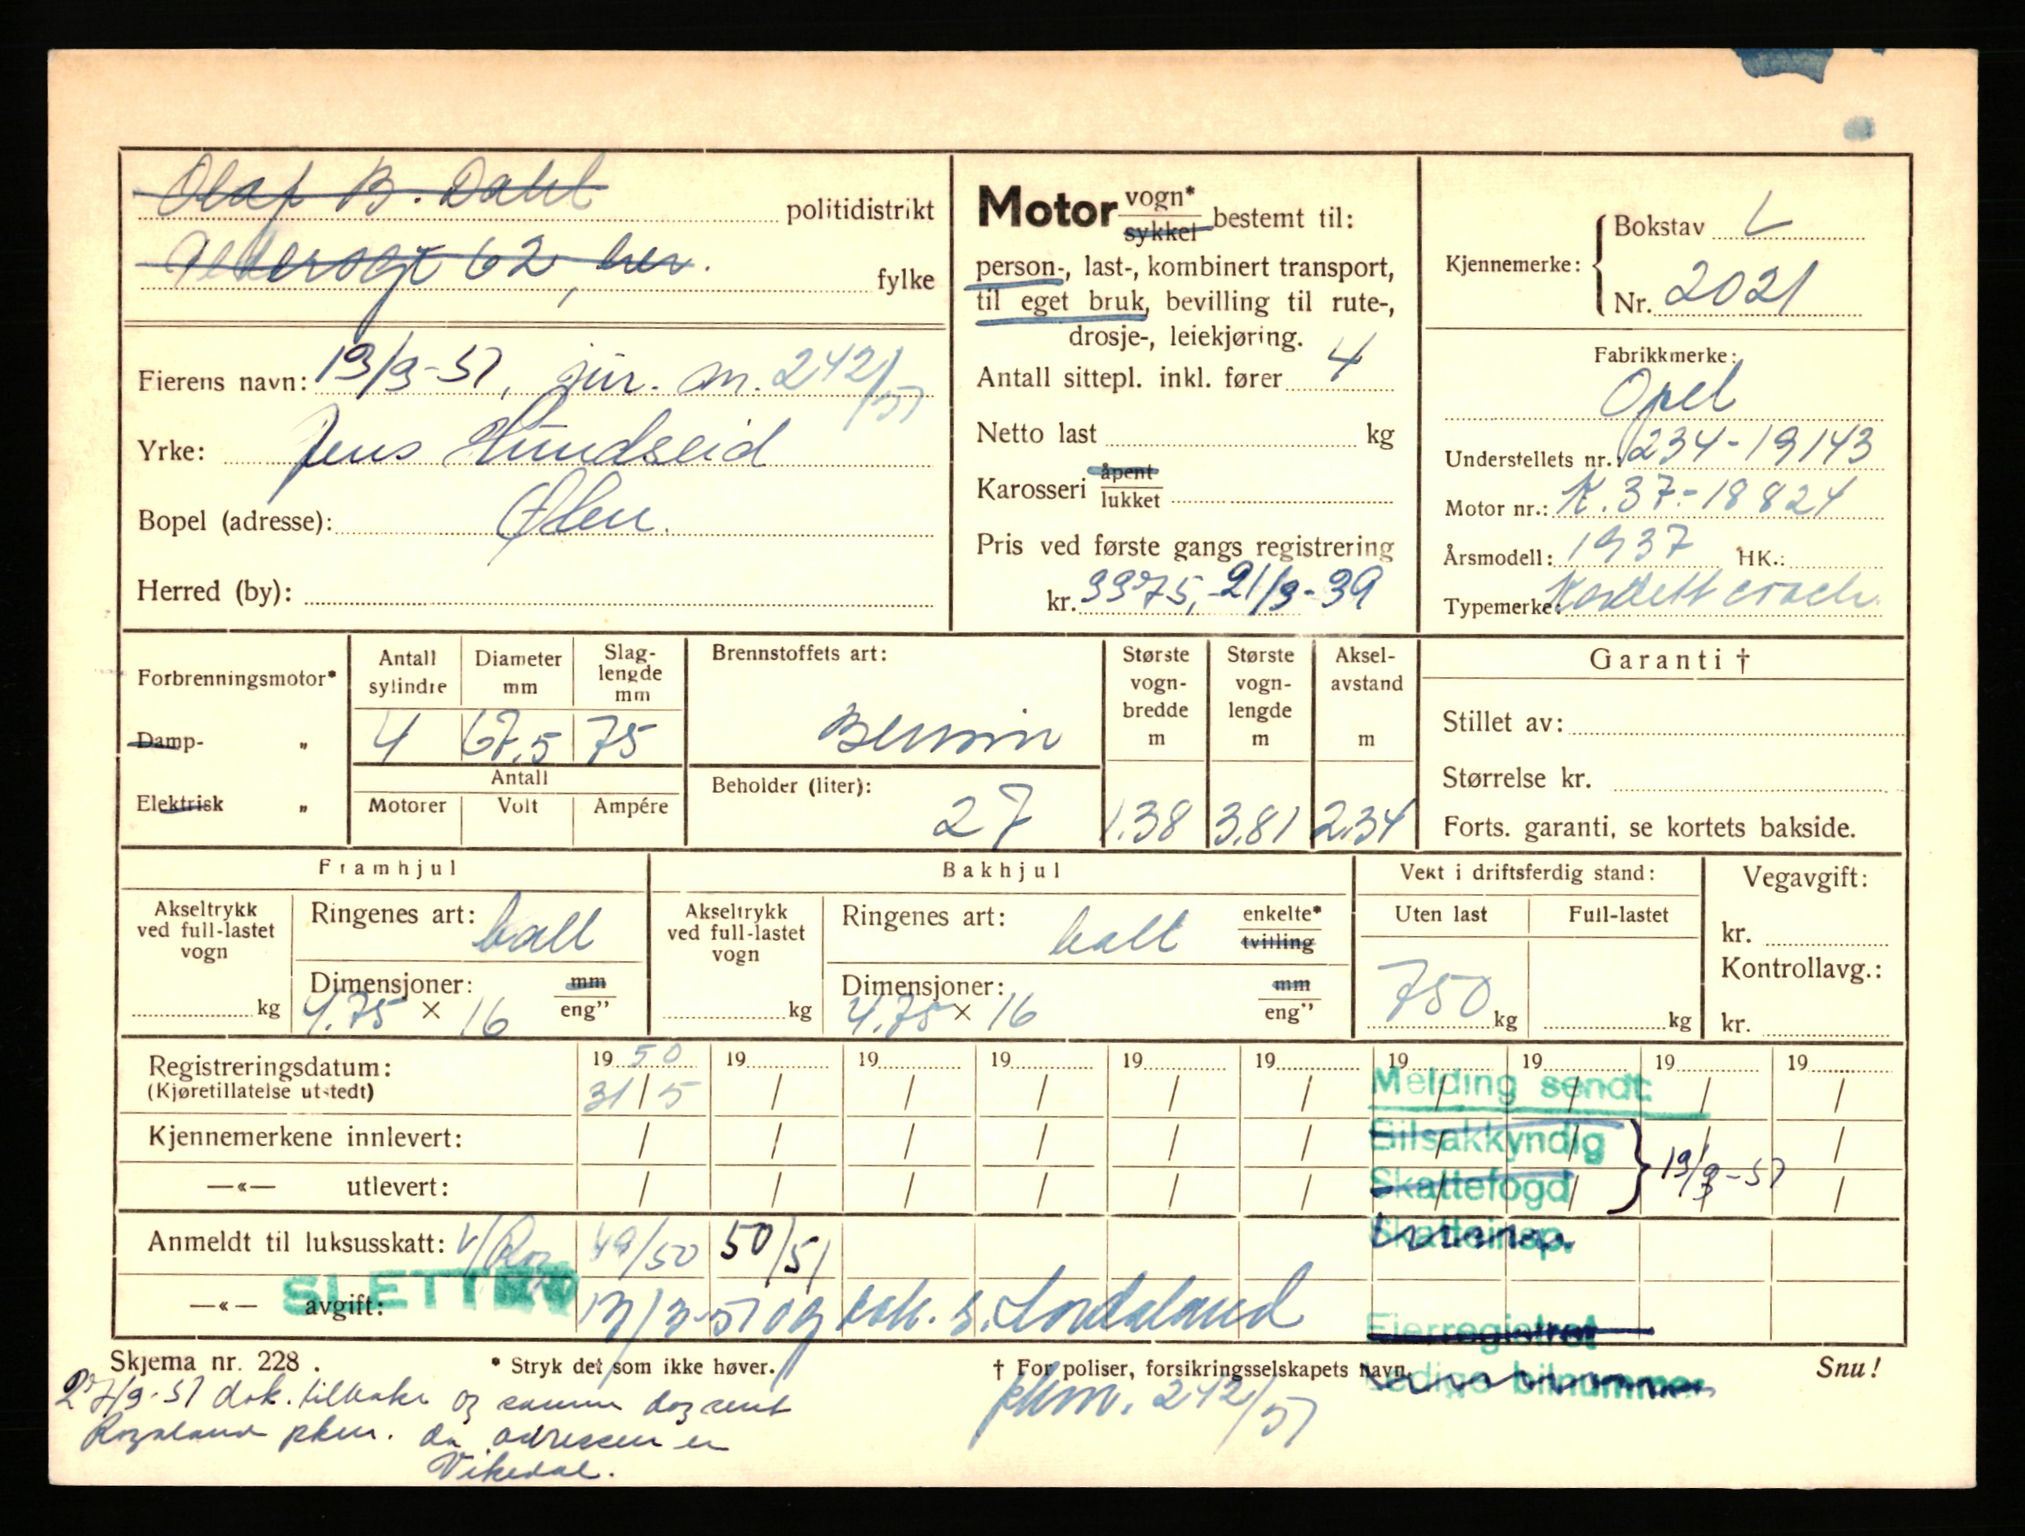 Olaf B. Dahl politidistrikt
62, her. fylke
Eierens navn: 19/9-51, jur. m. 242/51
Yrke: Jens Hundseid
Bopel (adresse): Ølen.
Herred (by):
Motor vogn* sykkel bestemt til:
person-, last-, kombinert transport,
til eget bruk, bevilling til rute-,
drosje-, leiekjøring.
Antall sittepl. inkl. fører 4
Netto last kg
Karosseri åpent lukket
Pris ved første gangs registrering
kr. 3375, 21/9-39
Kjennemerke: Bokstav L
Nr. 2021
Fabrikkmerke:
Opel
Understellets nr.: 234-19143
Motor nr.: K.37-18824
Årsmodell: 1937 HK.:
Typemerke: Kadett coach
Forbrenningsmotor*
Damp- „
Elektrisk „
Antall sylindre 4
Diameter mm 67,5
Slag-lengde mm 75
Antall
Motorer Volt Ampére
Brennstoffets art:
Bensin
Beholder (liter):
27
Største vogn-bredde m 1.38
Største vogn-lengde m 3.81
Aksel-avstand m 2.34
Garanti †
Stillet av:
Størrelse kr.
Forts. garanti, se kortets bakside.
Framhjul
Akseltrykk ved full-lastet vogn
kg
Ringenes art: ball
Dimensjoner: mm
4.75 × 16 eng”
Bakhjul
Akseltrykk ved full-lastet vogn
kg
Ringenes art: ball enkelte* tvilling
Dimensjoner: mm
4.75 × 16 eng”
Vekt i driftsferdig stand:
Uten last Full-lastet
750 kg kg
Vegavgift:
kr.
Kontrollavg.:
kr.
Registreringsdatum: 19 50 19 19 19 19 19 19 19 19 19
(Kjøretillatelse utstedt) 31/5 / / / / / / / / /
Kjennemerkene innlevert: / / / / / / / / / /
—«— utlevert: / / / / / / / / / /
Anmeldt til luksusskatt: 49/50 50/51
—«— avgift: 13/3-51 og dok. s. Hordaland
SLETTET
Melding sendt:
Bilsakkyndig
Skattefogd 19/9-51
Skatteinsp.
Eierregistret
Ledige bilnummer
Skjema nr. 228.
* Stryk det som ikke høver.
† For poliser, forsikringsselskapets navn.
Snu!
pkm. 242/51
27/9-51 dok. tilbake og samme dag sent
Rogaland pkm. da adressen er
Vikedal.